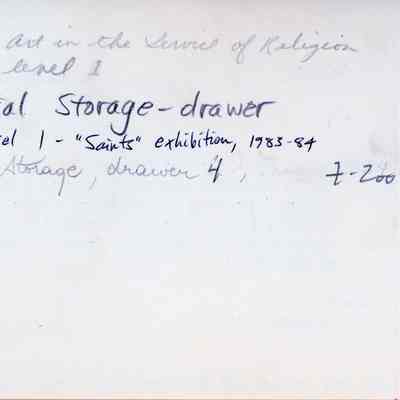 Art in the Service of Religion
level 1
al Storage-drawer
el 1 - "Saints" exhibition, 1983-84
Storage, drawer 4, 7-200